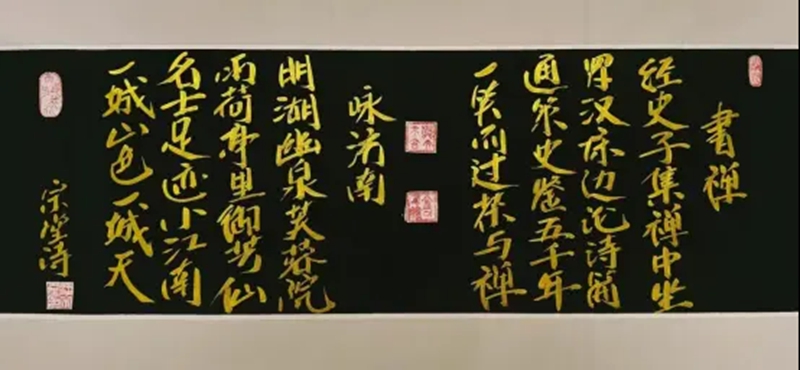 書禅
经史子集禅中坐
罗汉床边论诗篇
通策史鉴五千年
一笑而过茶与禅
咏济南
明湖幽泉芙蓉院
雨荷亭里御仙
名士足迹小江南
一城山色一城天
宗诗